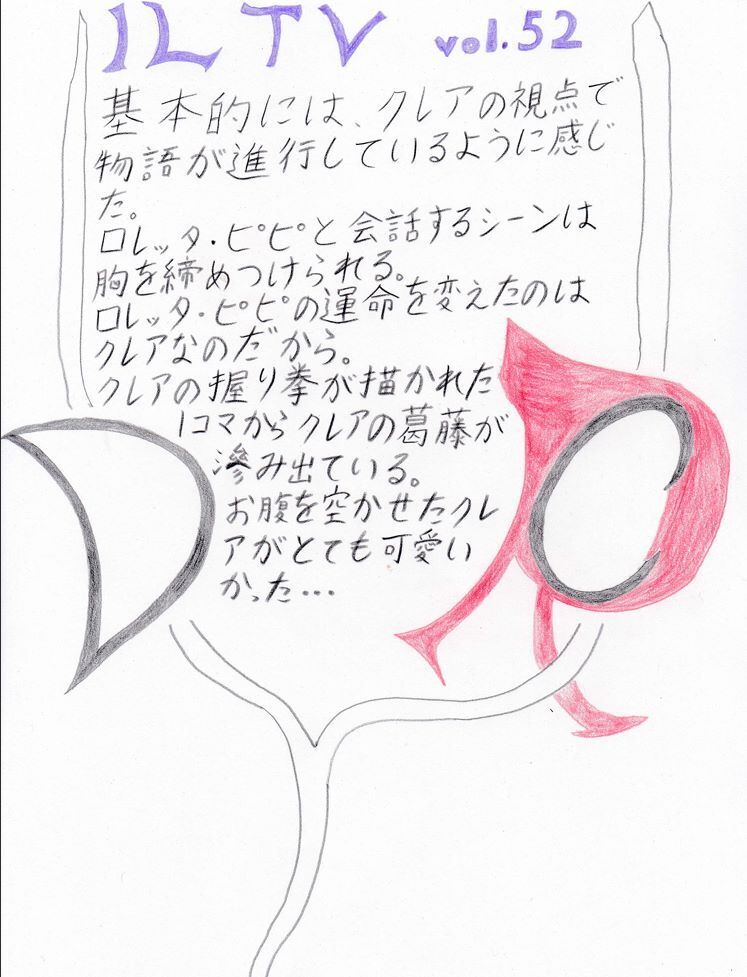 ILTV vol.52
基本的には、クレアの視点で
物語が進行しているように感じ
た。
ロレッタ・ピピと会話するシーンは
胸を締めつけられる。
ロレッタ・ピピの運命を変えたのは
クレアなのだから。
クレアの握り拳が描かれた
1コマからクレアの葛藤が
滲み出ている。
お腹を空かせたクレ
アがとても可愛い
かった…